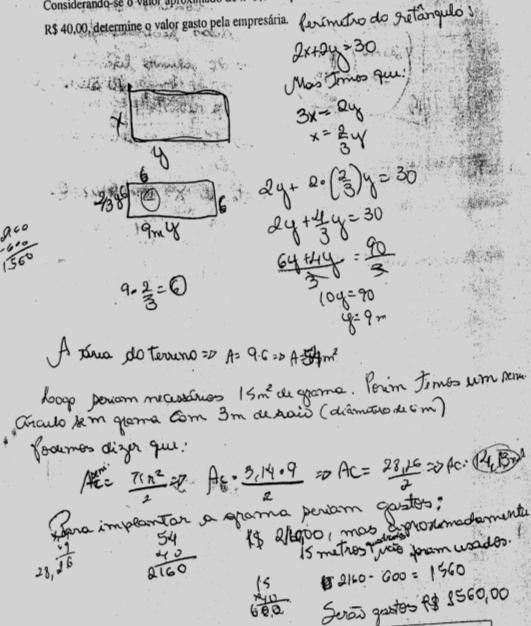 Considerando-se o valor aproximado
R$ 40,00, determine o valor gasto pela empresária.
Perímetro do retângulo:
2x+2y=30
Mas temos que:
3x=2y
x=2/3 y
x
y
6
2/3 y 6
6
9m y
2160
-600
1560
9·2/3=6
2y+2·(2/3)y=30
2y+4/3 y=30
6y+4y/3 = 90/3
10y=90
y=9m
A área do terreno => A=9·6=> A=54m²
Logo seriam necessários 15m² de grama. Porém temos um semi
círculo sem grama com 3m de raio (diâmetro de 6m)
Podemos dizer que:
Ac=πr²/2 => Ac·3,14·9/2 => Ac=28,26/2 => Ac·14,13m²
Para implantar a grama seriam gastos:
R$ 2160,00, mas aproximadamente
15 metros quadrados não foram usados.
x9
28,26
54
40
2160
15
40
600
2160-600=1560
Serão gastos R$ 1560,00